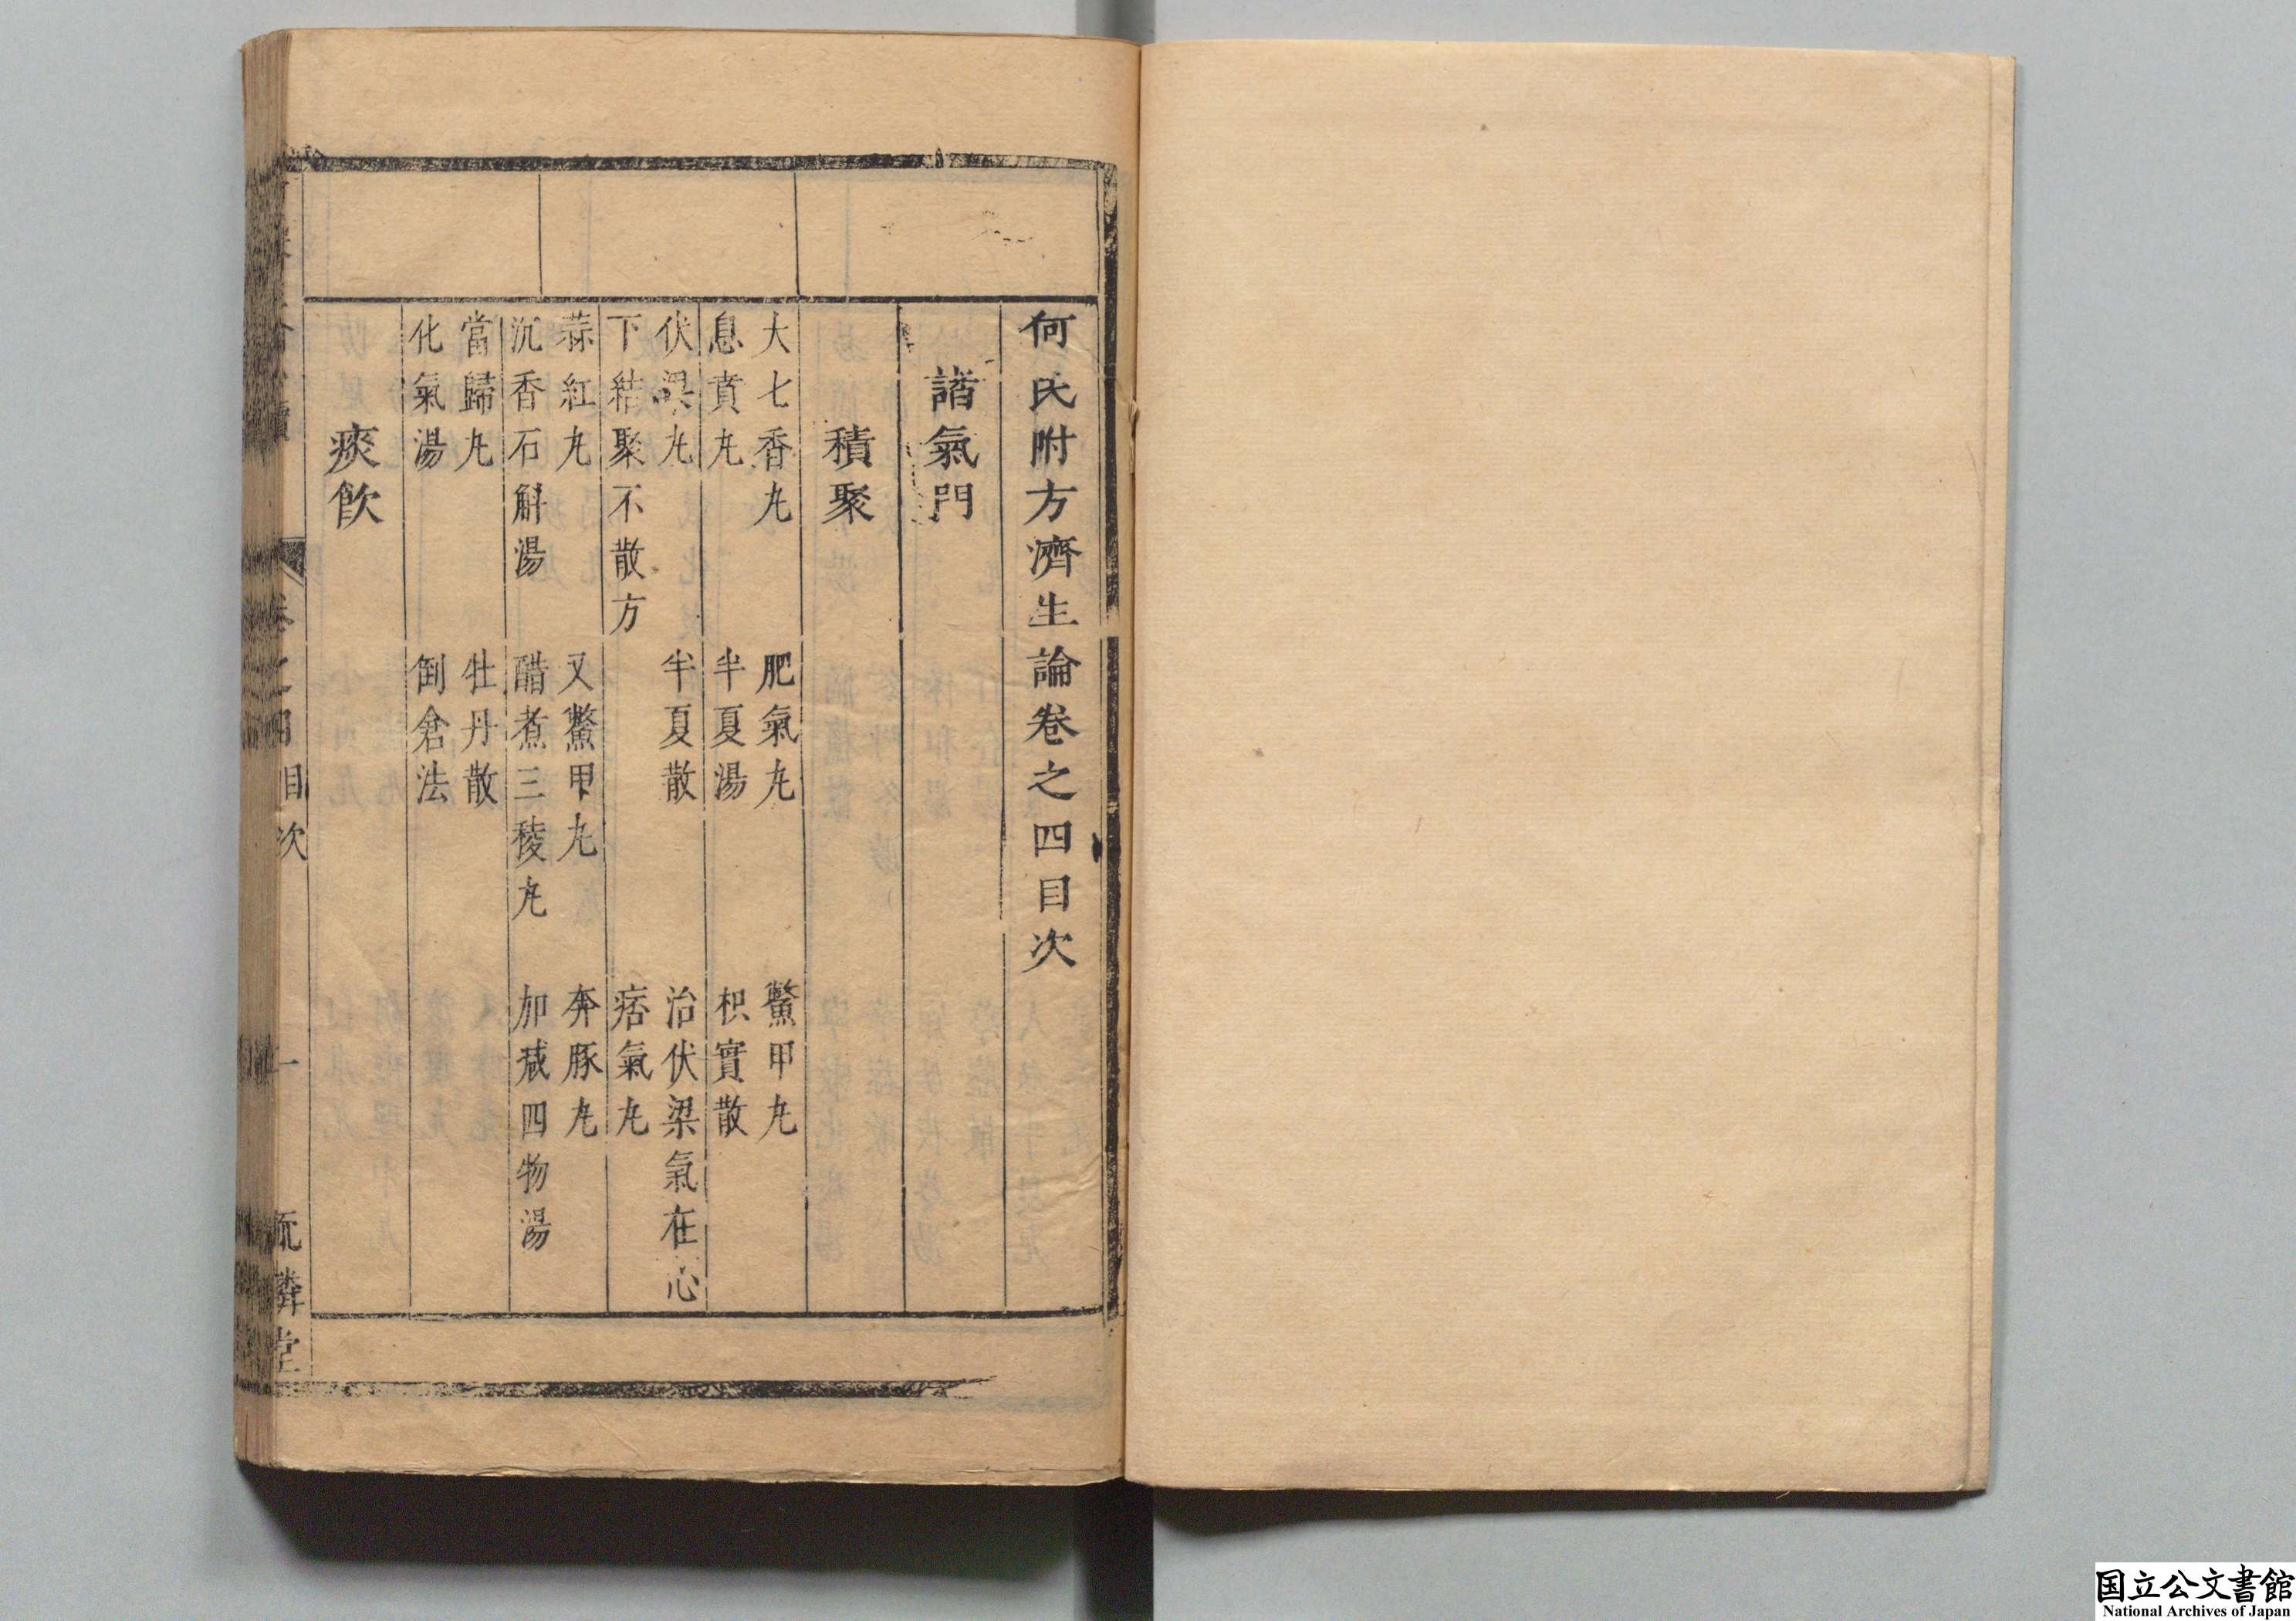 何氏附方濟生論卷之四目次
諸氣門
積聚
大七香丸 肥氣丸 鱉甲丸
息賁丸 半夏湯 枳實散
伏梁丸 半夏散 治伏梁氣在心
下結聚不散方 痞氣丸
蒜紅丸 又鱉甲丸 奔豚丸
沉香石斛湯 醋煮三稜丸 加減四物湯
當歸丸 牡丹散
化氣湯 倒倉法
痰飲
卷之四目次 一
国立公文書館
National Archives of Japan